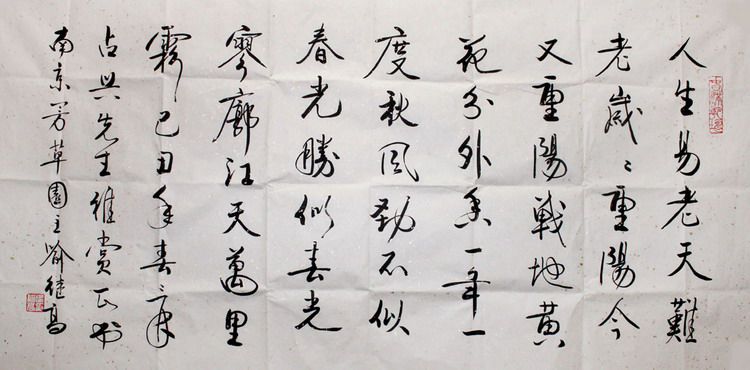 人生易老天難
老歲〻重陽今
又重陽戰地黃
花分外香一年一
度秋風勁不似
春光勝似春光
寥廓江天萬里
霜己丑年春
占兴先生雅賞正
南京芳草園主喻继高